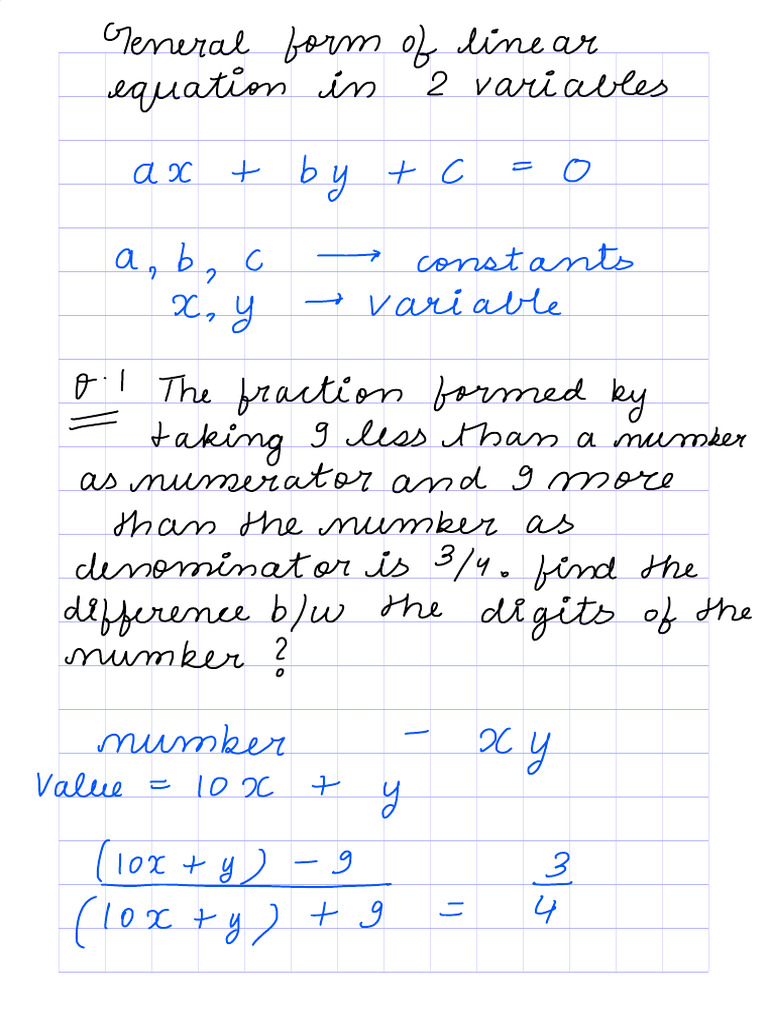 General form of linear
equation in 2 variables
ax + by + c = 0
a, b, c → constants
x, y → variable
Q.1 The fraction formed by
taking 9 less than a number
as numerator and 9 more
than the number as
denominator is 3/4. find the
difference b/w the digits of the
number ?
number - xy
Value = 10x + y
(10x + y) - 9 3
(10x + y) + 9 = 4